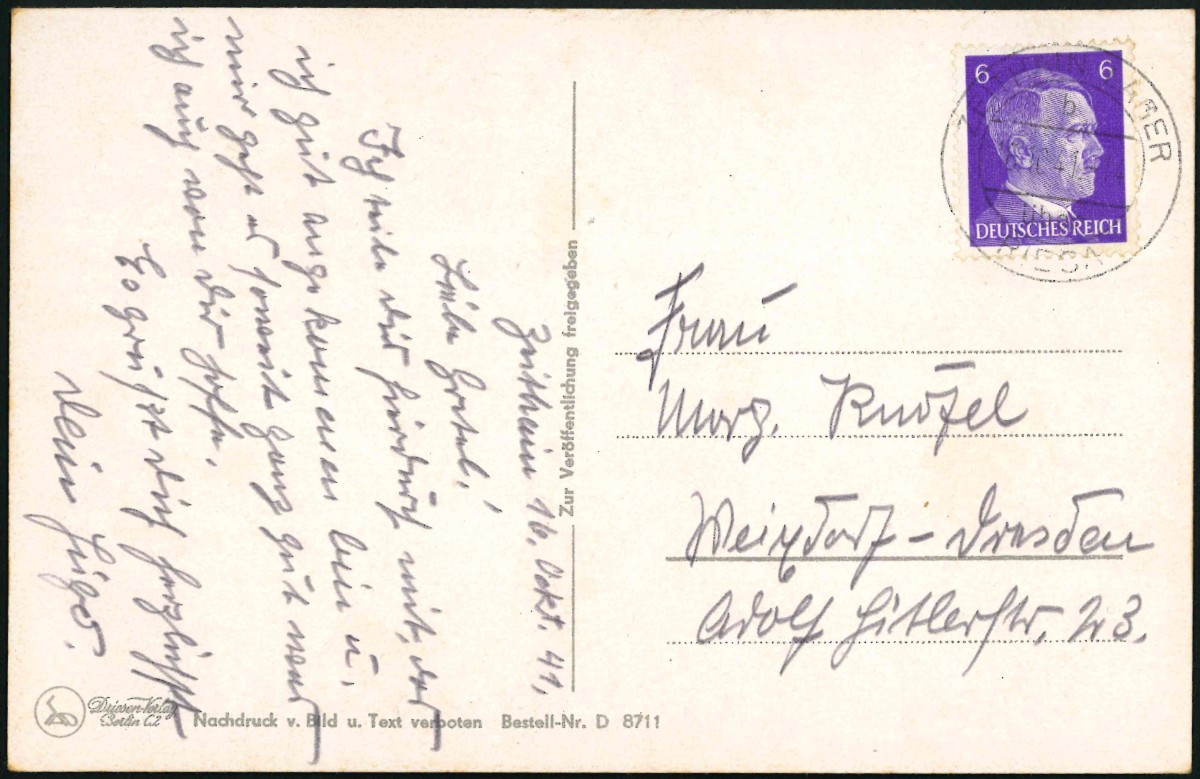 Zeithein 16. Okt. 41.
Liebe Gretel!
Ich teile dir hierdurch mit, das
ich gut angekommen bin u.
mir geht es soweit ganz gut was
ich auch von dir hoffe.
Es grüßt dich herzlichst
dein Hugo.
Zur Veröffentlichung freigegeben
6 6
DEUTSCHES REICH
b
über
RIESA
Frau
Marg.
Weixdorf-Dresden
Adolf Hitlerstr. 23.
Driesen-Verlag
Berlin C2
Nachdruck v. Bild u. Text verboten Bestell-Nr. D 8711